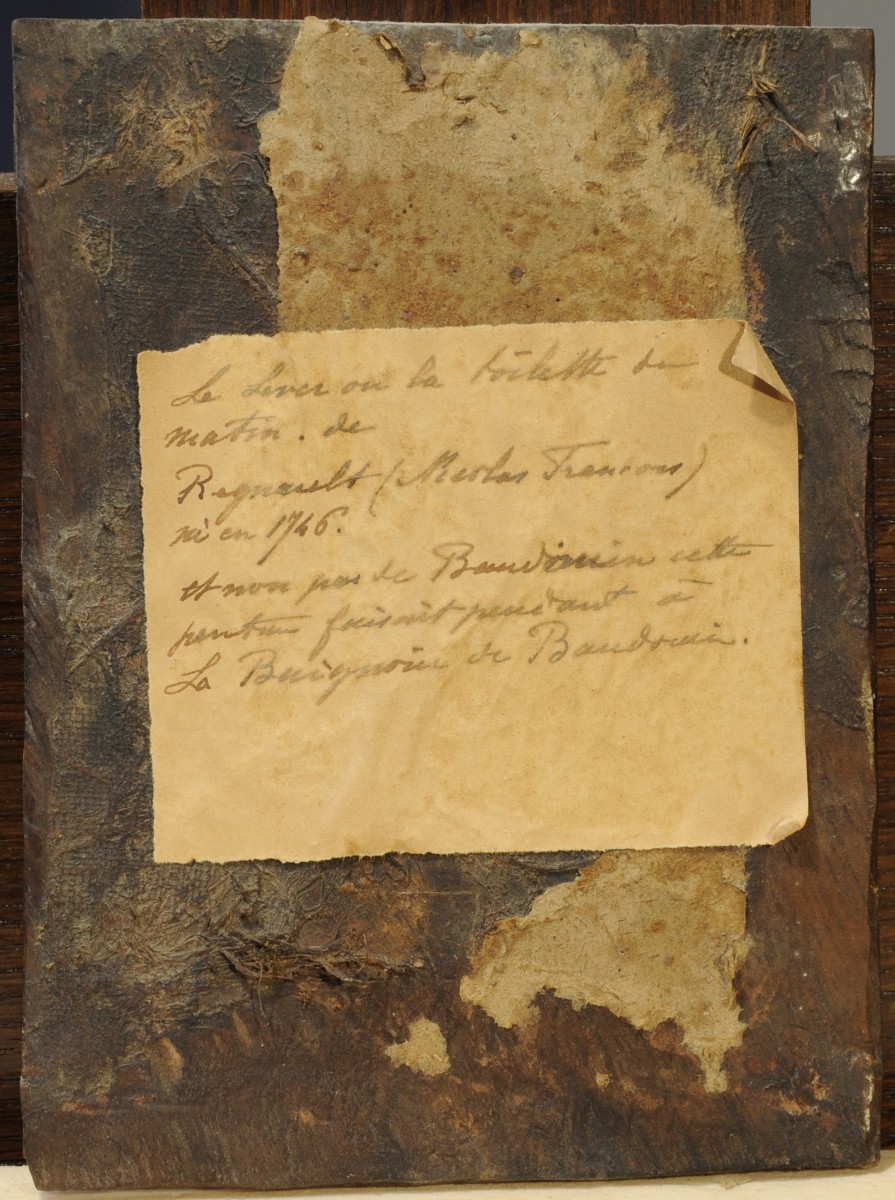 Le Lever ou la toilette du
matin. de
Regnault (Nicolas Francois)
né en 1746.
et non pas de Baudouin cette
peinture faisait pendant à
La Baignoire de Baudouin.